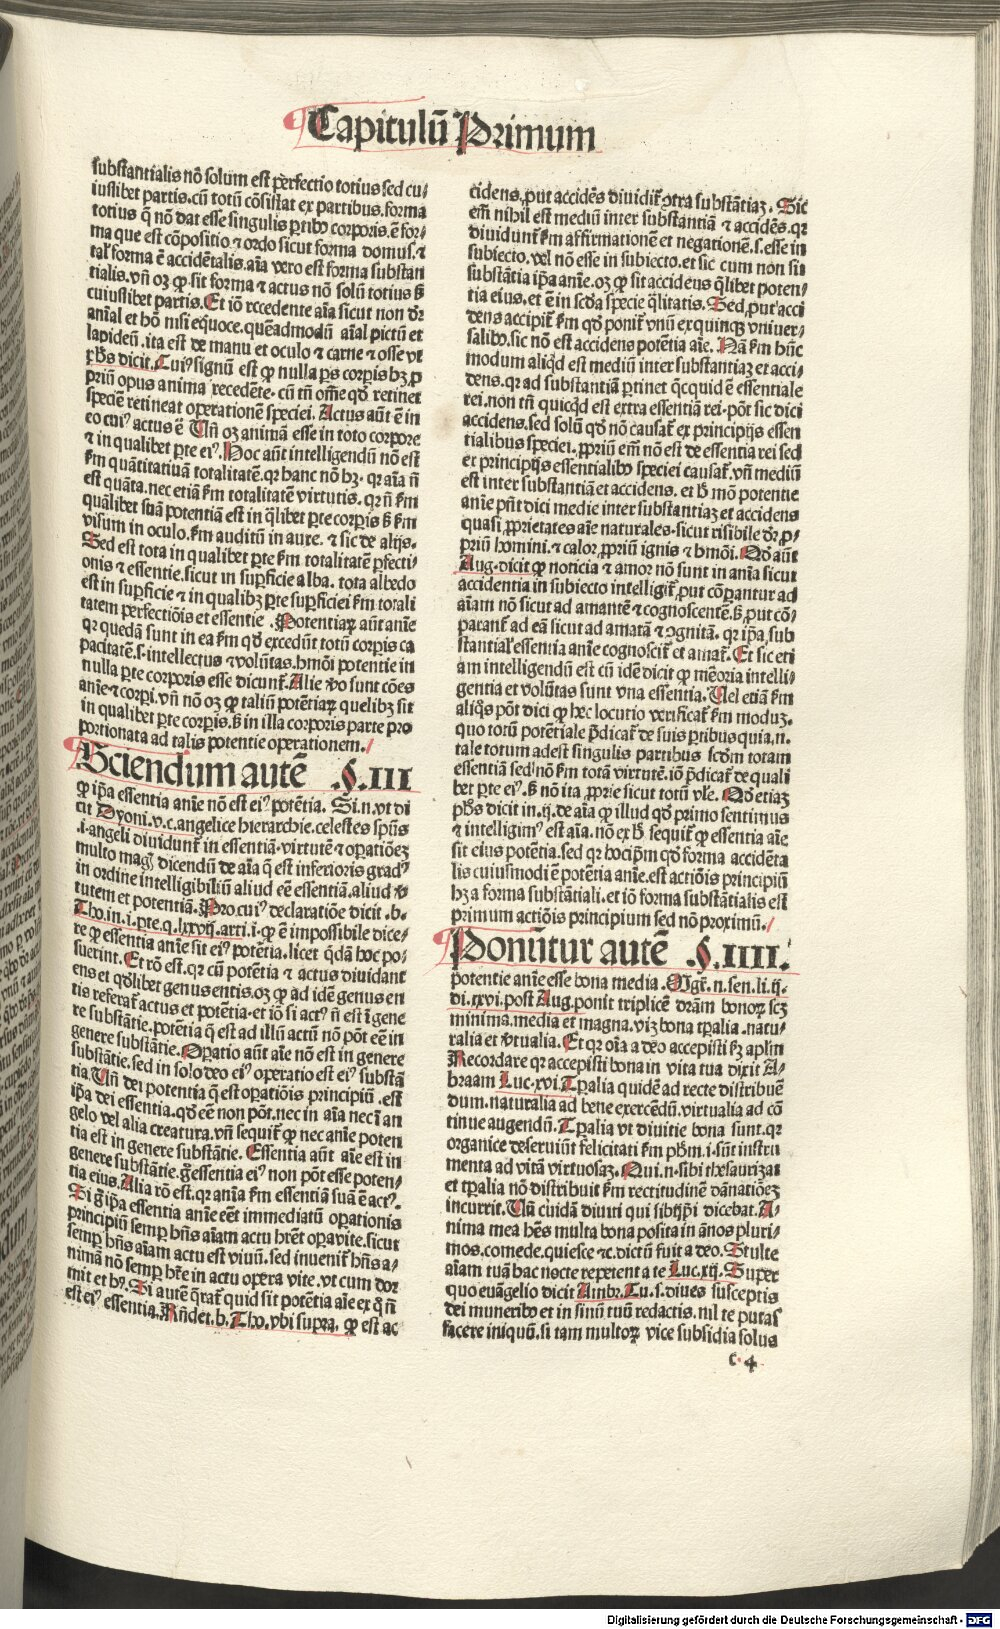 Capitulū Primum
substantialis nō solum est perfectio totius sed cu/
iuslibet partis.cū totū cōsistat ex partibus.forma
totius q̄ nō dat esse singulis ꝑtibꝰ corporis.ē for/
ma que est cōpositio ⁊ ordo sicut forma domus.⁊
tal' forma ē accidētalis.aīa vero est forma substan
tialis.vñ oꝫ ꝙ sit forma ⁊ actus nō solū totius ß
cuiuslibet partis.Et iō recedente aīa sicut non dr̄
anīal et hō nisi eq̄uoce.quēadmodū aīal pictū et
lapideū.ita est de manu et oculo ⁊ carne ⁊ osse vt
pħs dicit.Cuiꝰ signū est ꝙ nulla ꝑs corpis hꝫ ꝓ
priū opus anima recedēte.cū tn̄ om̄e qd̄ retinet
speciē retineat operationē speciei.Actus aūt ē in
eo cuiꝰ actus ē Un̄ oꝫ animā esse in toto corpore
⁊ in qualibet ꝑte eiꝰ.Hoc aūt intelligendū nō est
ẜm quātitatiuā totalitatē.qꝛ hanc nō hꝫ.qꝛ aīa ñ
est quāta.nec etiā ẜm totalitatē virtutis.qꝛ ñ ẜm
quālibet suā potentiā est in q̄libet ꝑte corpis ß ẜm
visum in oculo.ẜm auditū in aure.⁊ sic de alijs.
Sed est tota in qualibet ꝑte ẜm totalitatē ꝑfecti/
onis ⁊ essentie.sicut in suꝑficie alba.tota albedo
est in suꝑficie ⁊ in qualibꝫ ꝑte suꝑficiei ẜm totali
tatem perfectiōis et essentie.Potentiaꝝ aūt anīe
qꝛ quedā sunt in ea ẜm qd̄ excedūt totū corpis ca
pacitatē.s.intellectus ⁊ volūtas.hmōi potentie in
nulla ꝑte corporis esse dicunt̄.Alie v̄o sunt cōes
anīe ⁊ corpi.vñ nō oꝫ ꝙ taliū potētiaꝝ quelibꝫ sit
in qualibet ꝑte corpis.ß in illa corporis parte pro
portionata ad talis potentie operationem.
Sciendum autē §.III
ꝙ ip̄a essentia anīe nō est eiꝰ potētia.Si.n.vt di
cit Dyoni.v.c.angelice hierarchie.celestes sp̄us
.i.angeli diuidunt̄ in essentiā.virtutē ⁊ oꝑatiōeꝫ
multo magꝭ dicendū de aīa q̄ est inferioris gradꝰ
in ordine intelligibiliū aliud eē essentiā.aliud v̄
tutem et potentiā.Pro cuiꝰ declaratiōe dicit.b.
Tho.in.i.ꝑte.q.lxxvij.arti.i.ꝙ ē impossibile dice/
re ꝙ essentia anīe sit eiꝰ potētia.licet q̄dā hoc po/
suerint.Et rō est.qꝛ cū potētia ⁊ actus diuidant
ens et qd̄libet genus entis.oꝫ ꝙ ad idē genus en
tis referat̄ actus et potētia.et iō si actꝰ ñ est ī gene
re substātie.potētia q̄ est ad illū actū nō pōt eē in
genere substātie.Oꝑatio aūt aīe nō est in genere
substātie.sed in solo deo eiꝰ operatio est eiꝰ substā
tia.Un̄ dei potentia q̄ est oꝑatiōis principiū.est
ip̄a dei essentia.qd̄ eē non pōt.nec in aīa nec ī an
gelo vel alia creatura.vñ sequit̄ ꝙ nec anīe poten
tia est in genere substātie.Essentia aūt aīe est in
genere substātie.g̊ essentia eiꝰ non pōt esse poten/
tia eius.Alia rō est.qꝛ anīa ẜm essentiā suā ē actꝰ.
Si g̊ ip̄a essentia anīe eēt immediatū oꝑationis
principiū semꝑ hn̄s aīam actu hr̄et oꝑa vite.sicut
semꝑ hn̄s aīam actu est viuū.sed inuenit̄ hn̄s a/
nimā nō semꝑ hr̄e in actu opera vite.vt cum dor
mit et hꝰ.Si autē q̄rat̄ quid sit potētia aīe ex q̄ ñ
est eiꝰ essentia.Rn̄det.b.Tho.vbi supra.ꝙ est ac
cidens.ꝓut accidēs diuidit̄ ꝯtra substātiaꝫ.Sic
em̄ nihil est mediū inter substantiā ⁊ accidēs.qꝛ
diuidunt̄ ẜm affirmationē et negationē.s.esse in
subiecto.vel nō esse in subiecto.et sic cum non sit
substātia ip̄a anīe.oꝫ ꝙ sit accidens q̄libet poten/
tia eius.et ē in scd̄a specie q̄litatis.Sed ꝓut acci
dens accipit̄ ẜm qd̄ ponit̄ vnū ex quinqꝫ vniuer/
salibꝰ.sic nō est accidens potētia aīe.Nā ẜm hūc
modum aliqd̄ est mediū inter substantiaꝫ et acci/
dens.qꝛ ad substantiā ꝑtinet q̄cquid ē essentiale
rei.non tn̄ quicqd̄ est extra essentiā rei.pōt sic dici
accidens.sed solū qd̄ nō causat̄ ex principijs essen
tialibus speciei.ꝓpriū em̄ nō est de essentia rei sed
ex principijs essentialibꝰ speciei causat̄.vñ mediū
est inter substantiā et accidens.et h̄ mō potentie
anīe pñt dici medie inter substantiaꝫ et accidens
quasi ꝓprietates aīe naturales.sicut risibile dr̄ ꝓ/
priū homini.⁊ calor ꝓpriū ignis ⁊ hmōi.Qd̄ aūt
Aug.dicit ꝙ noticia ⁊ amor nō sunt in anīa sicut
accidentia in subiecto intelligit̄.ꝓut cōparantur ad
aīam nō sicut ad amantē ⁊ cognoscentē.ß ꝓut cō/
parant̄ ad eā sicut ad amatā ⁊ ꝯgnitā.qꝛ ip̄a sub
stantial' essentia anīe cognoscit̄ et amat̄.Et sic eti
am intelligendū est cū idē dicit ꝙ mēoria intelli/
gentia et volūtas sunt vna essentia.Uel etiā ẜm
aliq̄s pōt dici ꝙ hec locutio verificat̄ ẜm moduꝫ.
quo totū potētiale p̄dicat̄ de suis ꝑtibus quia.n.
tale totum adest singulis partibus scd̄m totam
essentiā sed nō ẜm totā virtutē.iō p̄dicat̄ de quali
bet ꝑte eiꝰ.ß nō ita ꝓprie sicut totū vl'e.Qd̄ etiaꝫ
pħs dicit in.ij.de aīa ꝙ illud qd̄ primo sentimus
⁊ intelligimꝰ est aīa.nō ex h̄ sequit̄ ꝙ essentia aīe
sit eius potētia.sed qꝛ hoc ip̄m qd̄ forma accidēta
lis cuiusmodi ē potētia anīe.est actiōis principiū
hꝫ a forma substātiali.et iō forma substātialis est
primum actiōis principium sed nō proximū.
Ponūtur autē §.IIII.
potentie anīe esse bona media.Mgr̄.n.sen.li.ij.
di.xxvi.post Aug.ponit triplicē dr̄am bonoꝝ scꝫ
minima.media et magna.viꝫ bona tꝑalia.natu/
ralia et v̄tualia.Et qꝛ oīa a deo accepisti ẜꝫ aplm̄
Recordare qꝛ accepisti bona in vita tua dixit A/
braam Luc.xvi.Tꝑalia quidē ad recte distribuē
dum.naturalia ad bene exercēdū.virtualia ad cō
tinue augendū.Tꝑalia vt diuitie bona sunt.qꝛ
organice deseruiūt felicitati ẜm pħm.i.sūt instru
menta ad vitā virtuosaꝫ.Qui.n.sibi thesaurizat
et tꝑalia nō distribuit ẜm rectitudinē dānatiōeꝫ
incurrit.Uñ cuidā diuiti qui sibijp̄i dicebat.A/
nima mea hēs multa bona posita in ānos pluri/
mos.comede.quiesce ⁊c.dictū fuit a deo.Stulte
aīam tuā hac nocte repetent a te Luc.xij.Super
quo euāgelio dicit Ambr.Tu.s.diues susceptis
dei muneribꝰ et in sinū tuū redactis.nil te putas
facere iniquū.si tam multoꝝ vice subsidia solus
c 4
Digitalisierung gefördert durch die Deutsche Forschungsgemeinschaft - DFG